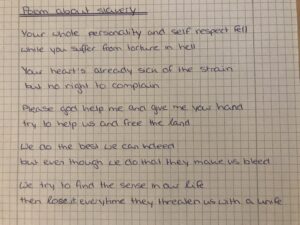 Poem about slavery
Your whole personality and self respect fell
while you suffer from torture in hell
Your heart's already sick of the strain
but no right to complain
Please god help me and give me your hand
try to help us and free the land
We do the best we can indeed
but even though we do that they make us bleed
We try to find the sense in our life
then lose it everytime they threaten us with a knife